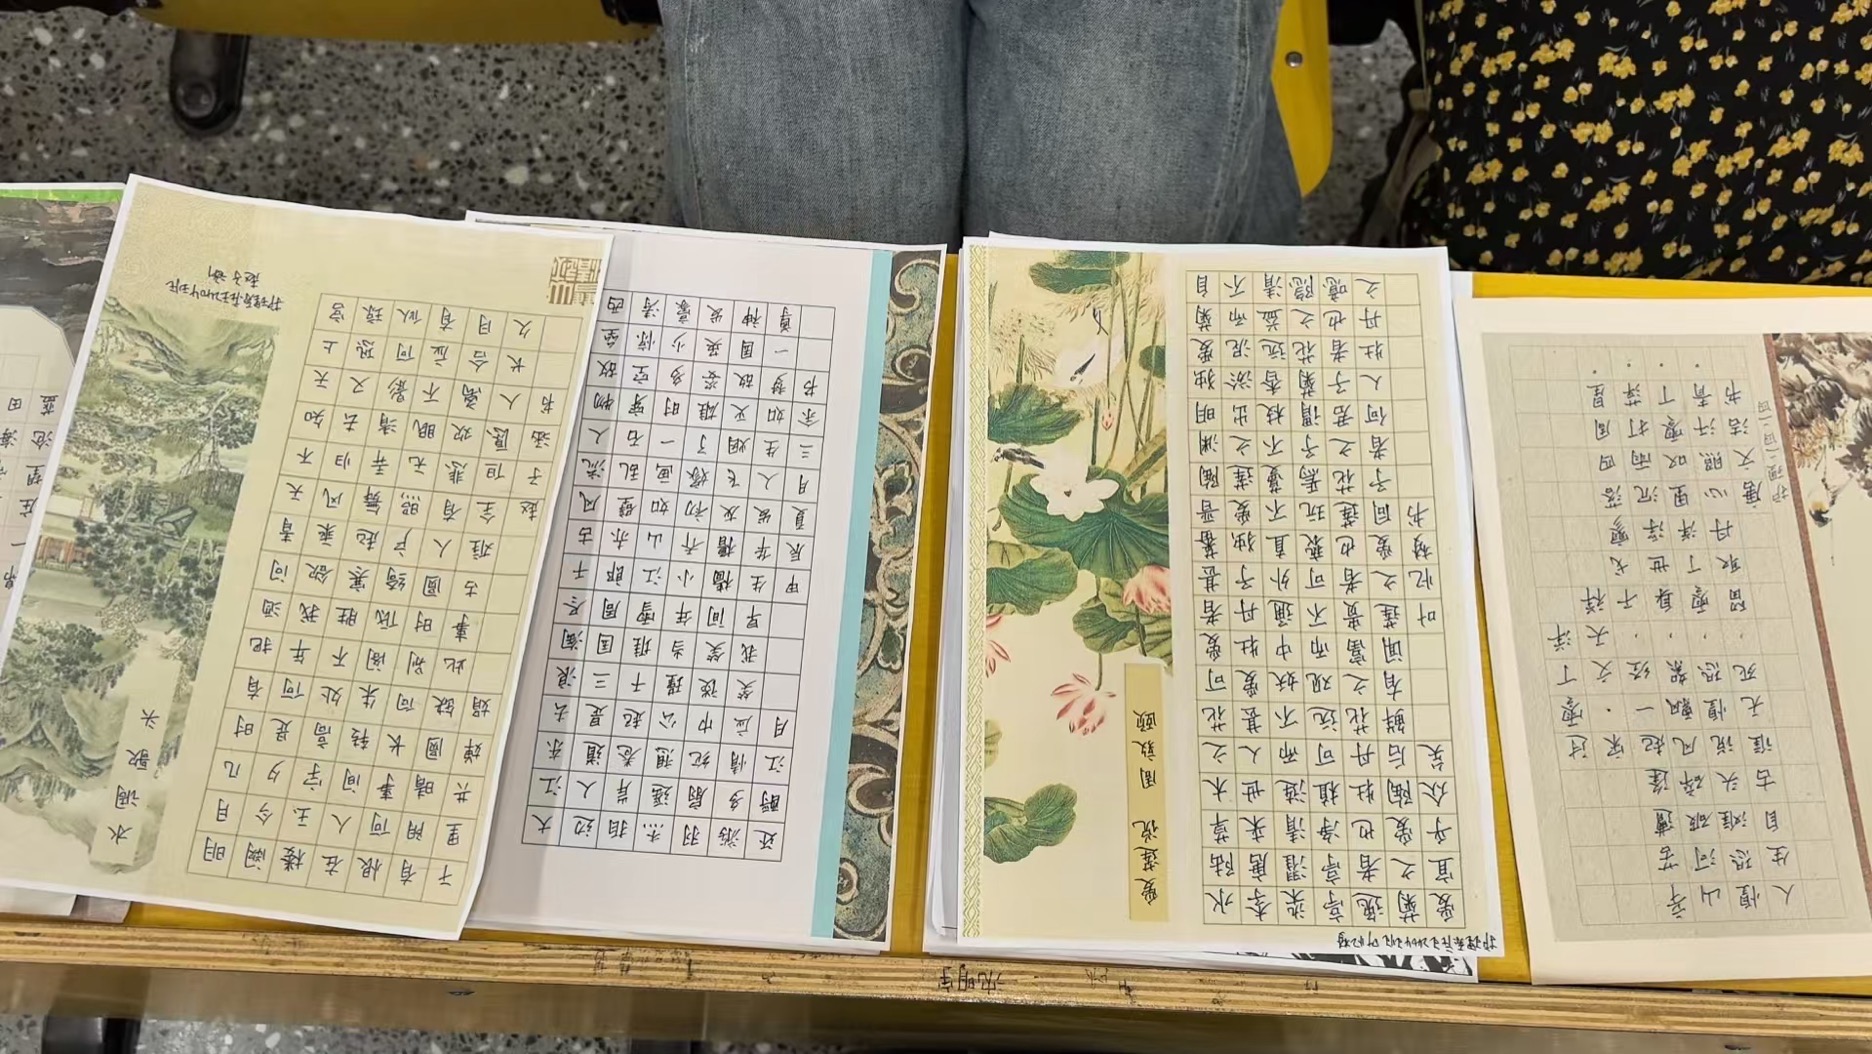 水调歌头
明月几时有把酒问青天不知天上宫
阙今夕是何年我欲乘风归去又恐琼
楼玉宇高处不胜寒起舞弄清影何似
在人间转朱阁低绮户照无眠不应有
恨何事长向别时圆人有悲欢离合月
有阴晴圆缺此事古难全但愿人长久
子里共婵娟
赵子涵书
赵子涵
大江东去浪淘尽千古风流人物故垒西
边人道是三国周郎赤壁乱石穿空惊涛
拍岸卷起千堆雪江山如画一时多小豪
杰遥想公瑾当年小乔初嫁了雄姿英发
羽扇纶巾谈笑间樯橹灰飞烟灭故国神
游多情应笑我早生华发人生如梦一尊
还酹江月
甲辰夏月三余书
爱莲说 周敦颐
水陆草木之花可爱者甚蕃晋陶渊明独爱菊自
李唐来世人甚爱牡丹予独爱莲之出淤泥而不
染濯清涟而不妖中通外直不蔓不枝香远益清
亭亭净植可远观而不可亵玩焉予谓菊花之隐
逸者也牡丹花之富贵者也莲花之君子者也噫
菊之爱陶后鲜有闻莲之爱同予者何人牡丹之
爱宜乎众矣
叶忆梦书
过零丁洋
宋·文天祥
辛苦遭逢起一经,干戈寥落四周星.
山河破碎风飘絮,身世浮沉雨打萍.
惶恐滩头说惶恐,零丁洋里叹零丁.
人生自古谁无死,留取丹心照汗青.
唐文洁书